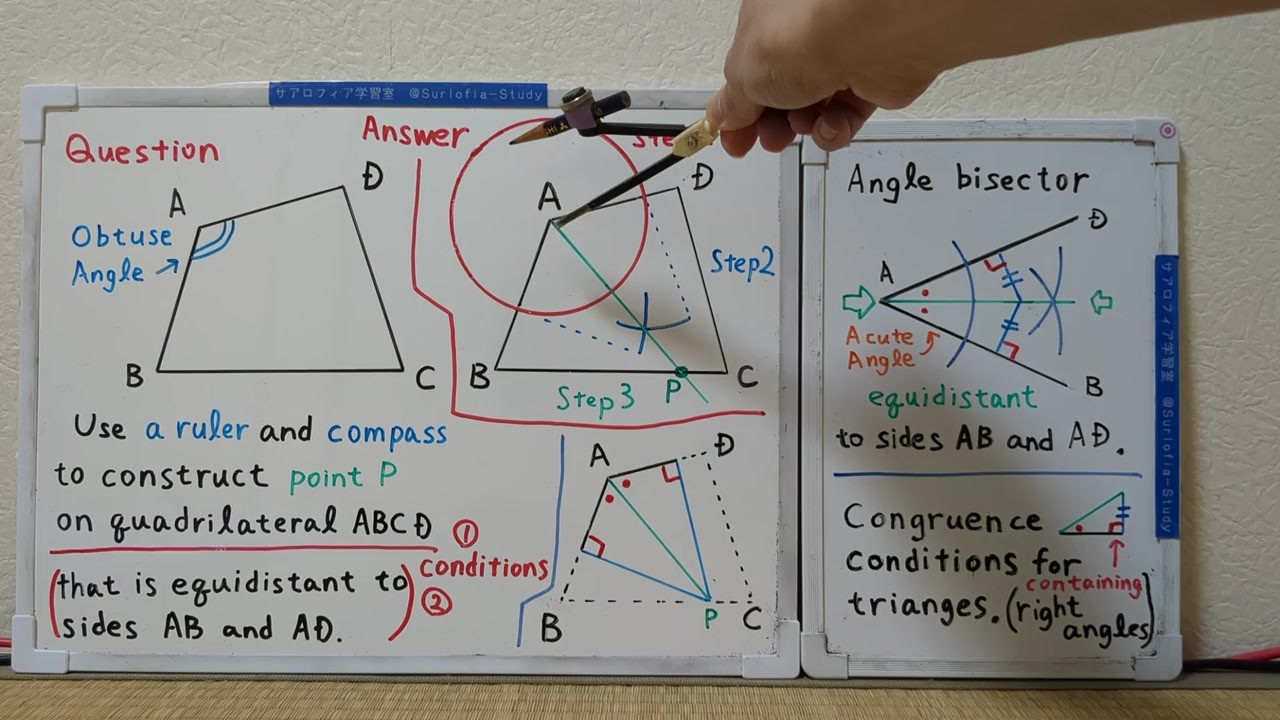 サアロフィア学習室 @Surlofia-Study
Question
A
D
Obtuse
Angle →
B
C
Use a ruler and compass
to construct point P
on quadrilateral ABCD ①
(that is equidistant to
sides AB and AD.)
conditions
②
Answer
A
D
Step2
B
C
P
Step3
A
D
B
P
C
Angle bisector
D
A
Acute
Angle
B
equidistant
to sides AB and AD.
Congruence
conditions for
containing
trianges. (right
angles)
サアロフィア学習室 @Surlofia-Study
SHI